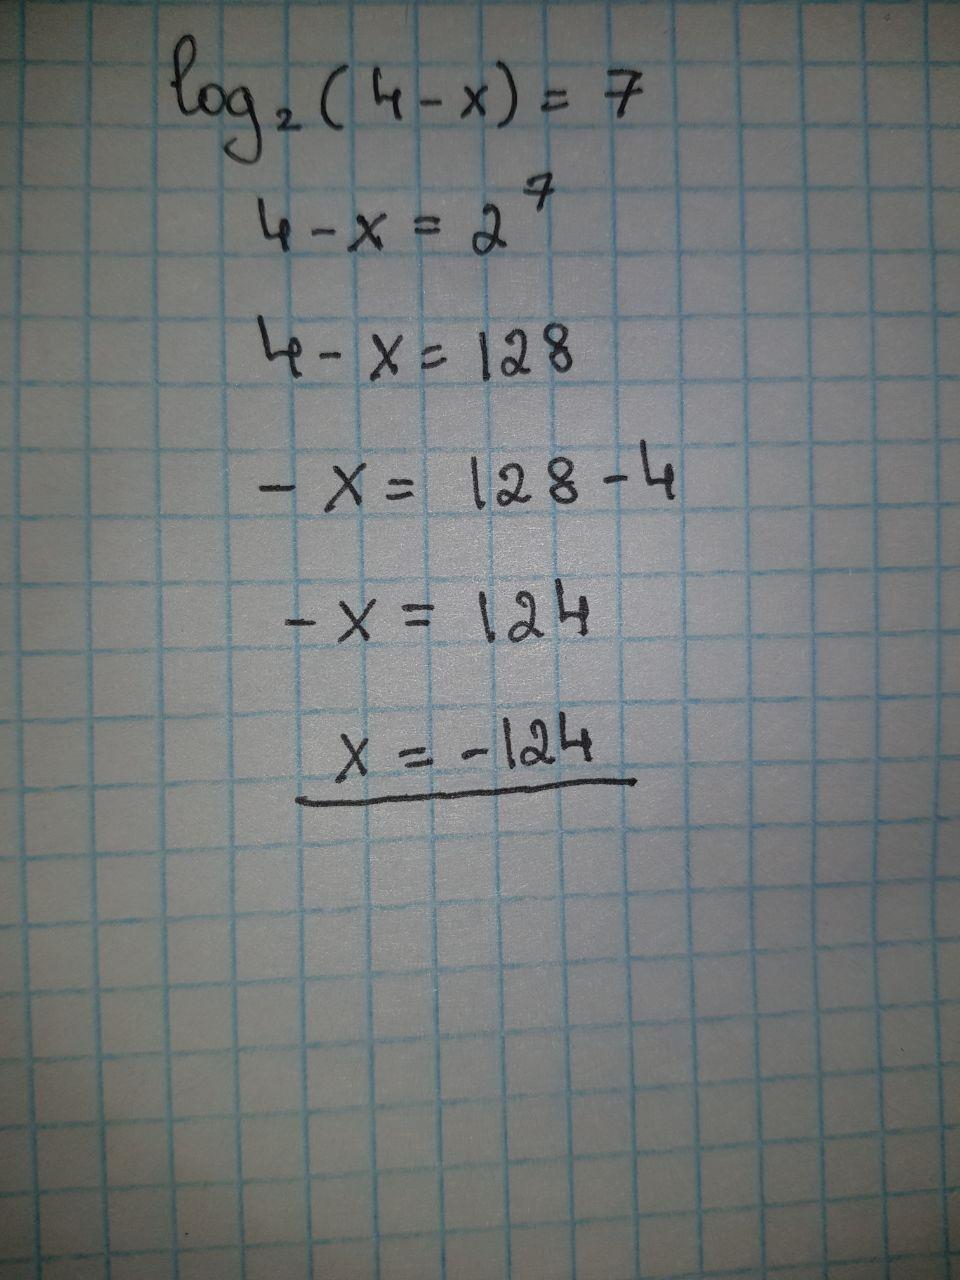 log₂(4-x)=7
4-x=2⁷
4-x=128
-x=128-4
-x=124
x=-124